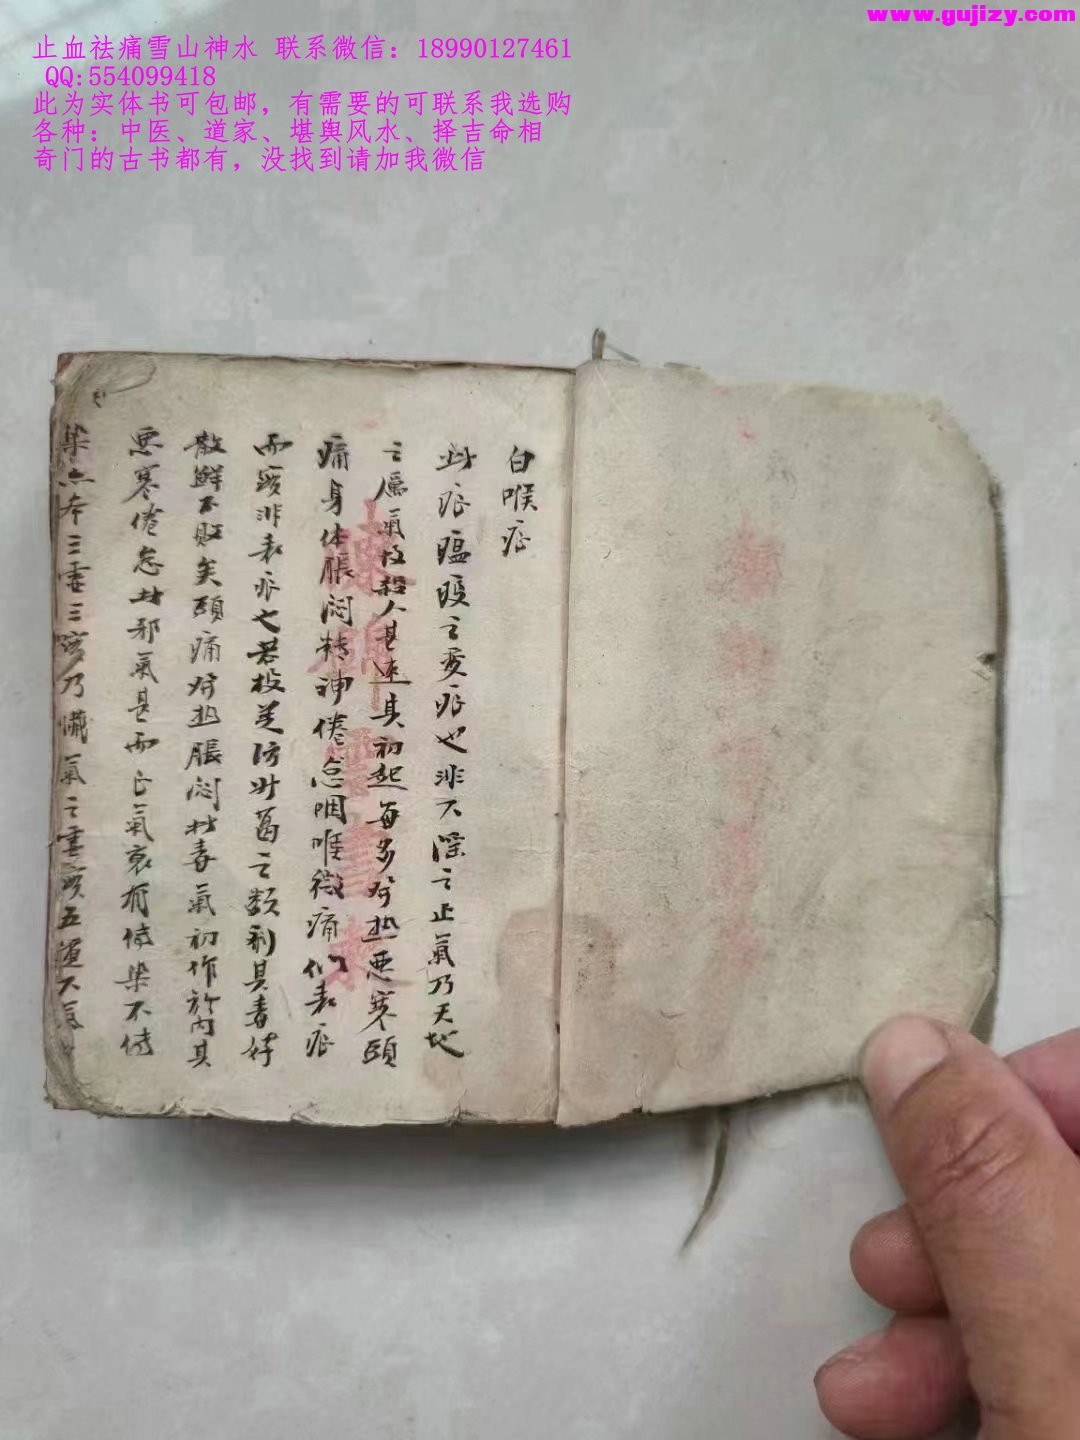 www.gujizy.com
止血祛痛雪山神水 联系微信：18990127461
QQ:554099418
此为实体书可包邮，有需要的可联系我选购
各种：中医、道家、堪舆风水、择吉命相
奇门的古书都有，没找到请加我微信
白喉症
此症瘟疫之变症也非六淫之正氣乃天地
之厲氣故殺人甚速其初起每多发热恶寒頭
痛身体脹闷精神倦怠咽喉微痛似表症
而实非表症也若投羌防升葛之類利其毒
散鲜不败矣頭痛发热脹闷姑毒氣初作於內其
恶寒倦怠甘邪氣甚而正氣衰有传染不传
染 三 三 乃 氣之 五運六氣